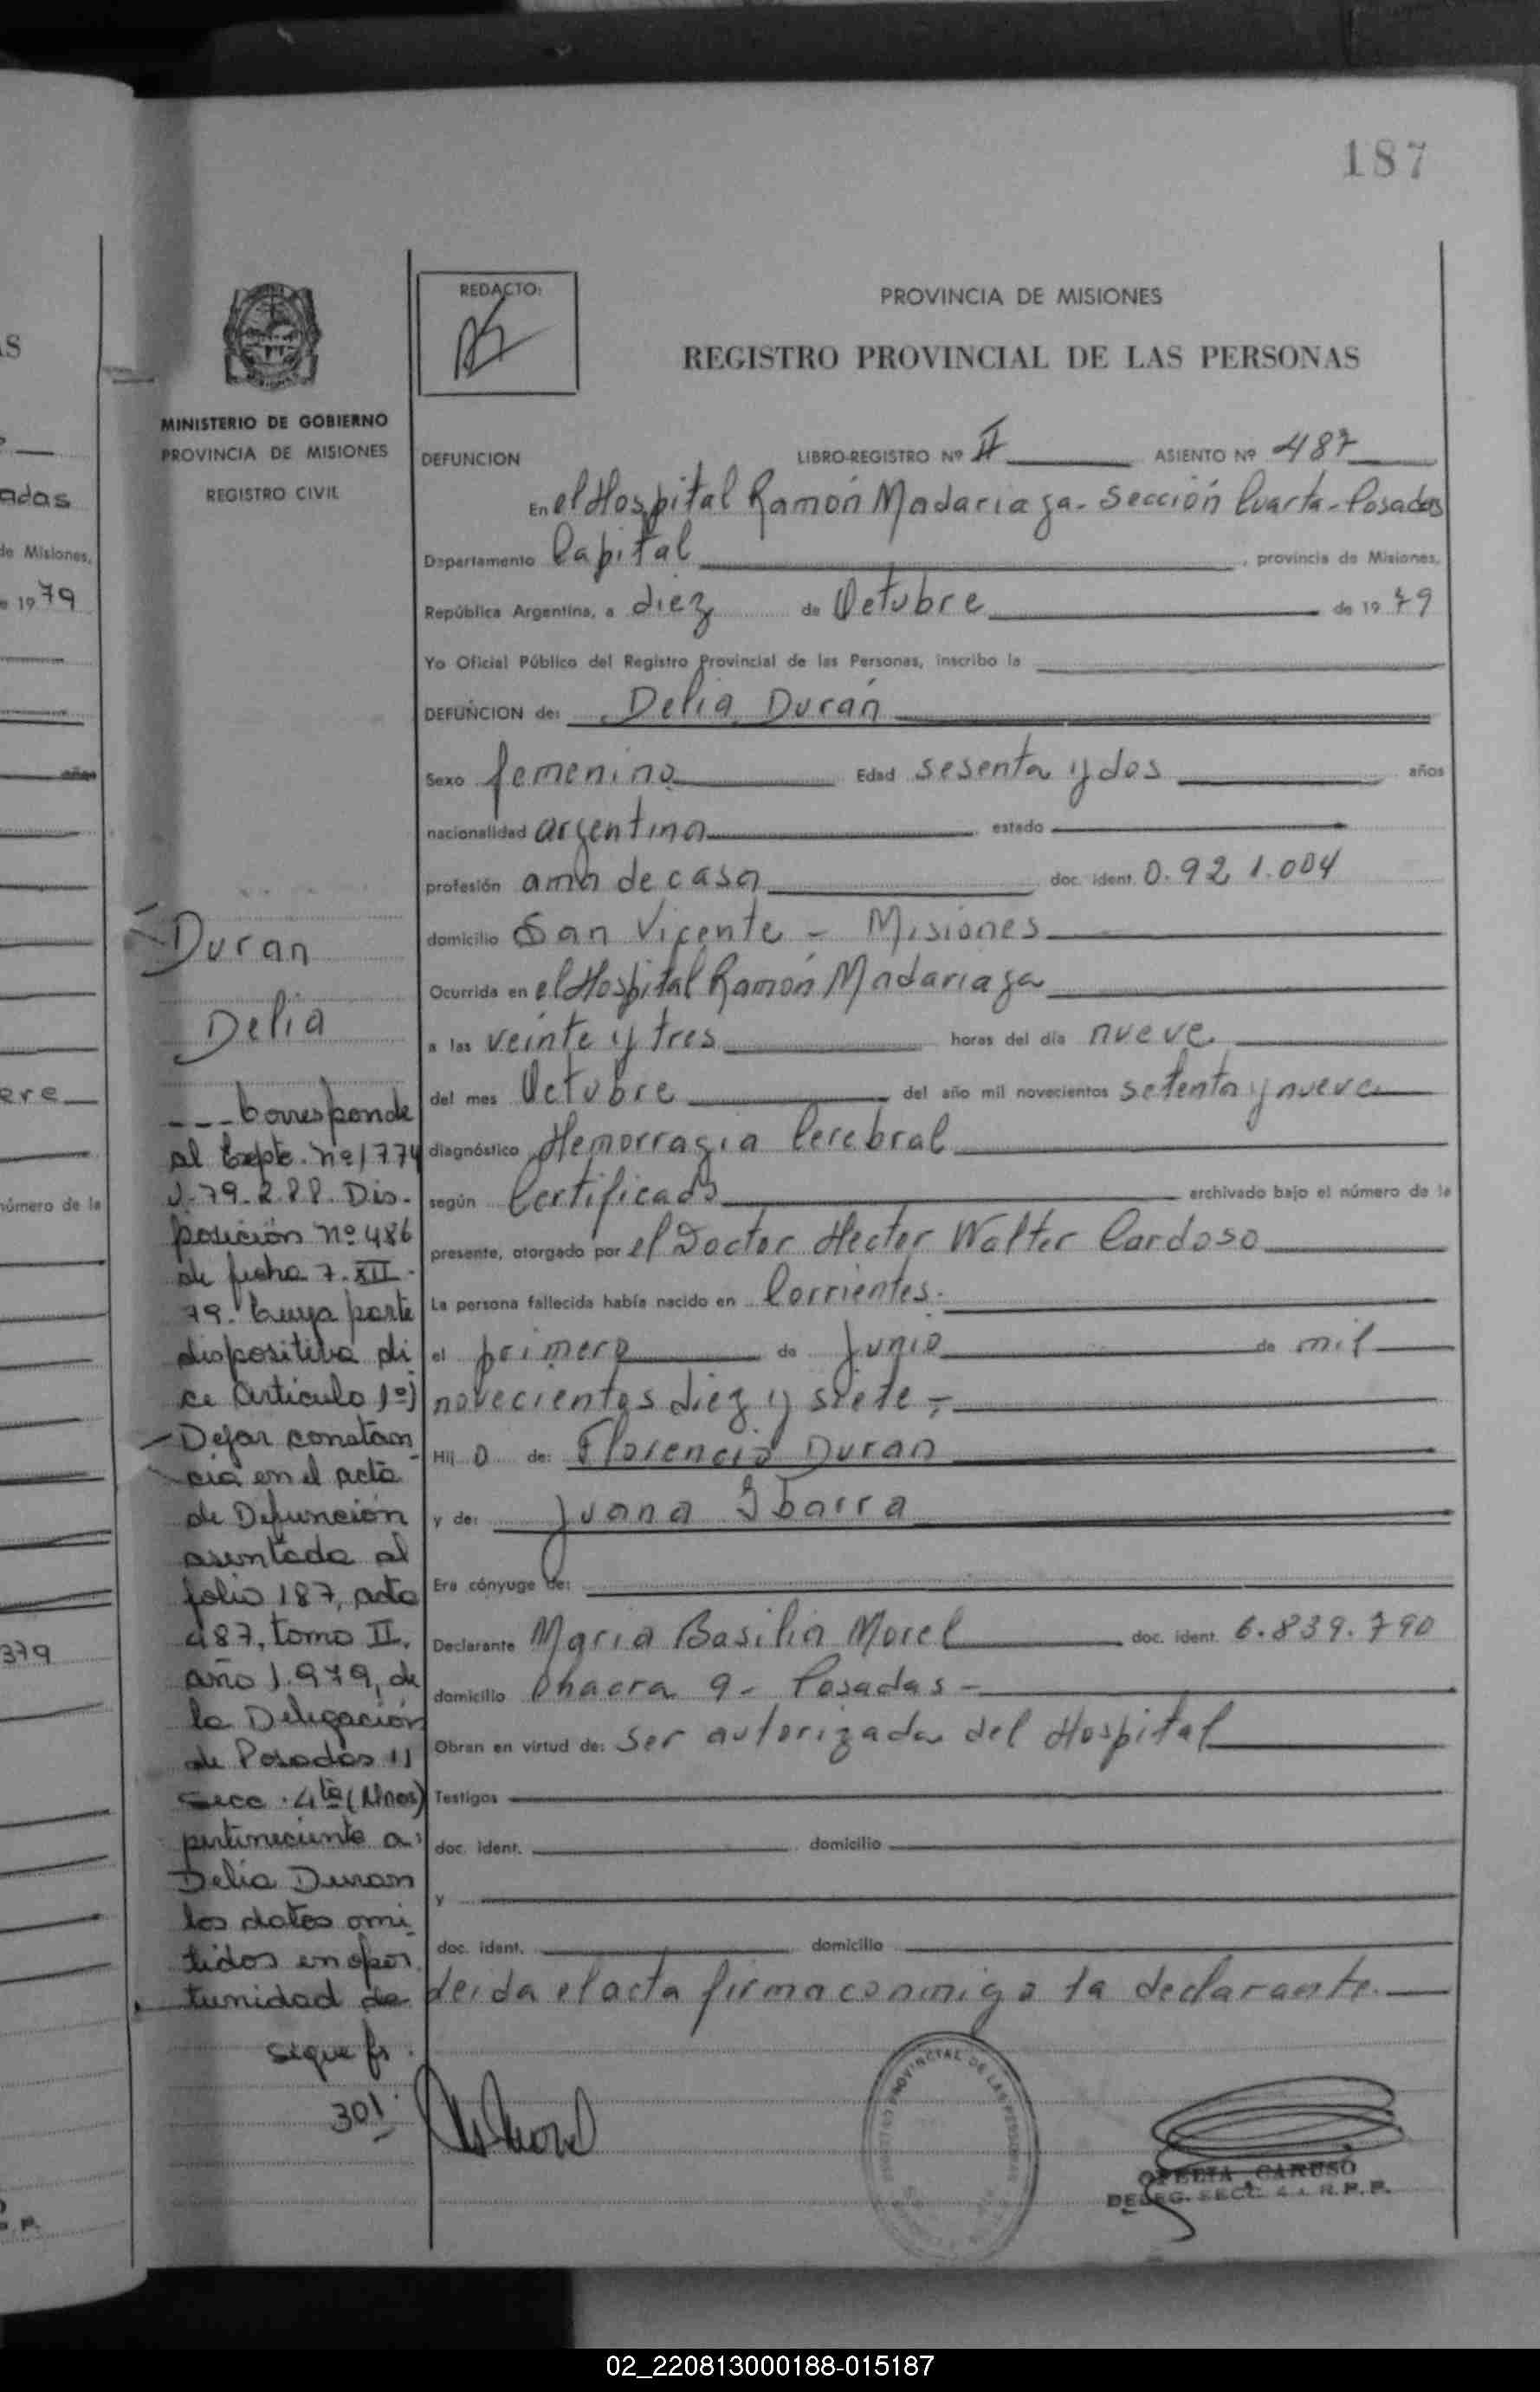 187
REDACTO:
PROVINCIA DE MISIONES
REGISTRO PROVINCIAL DE LAS PERSONAS
MINISTERIO DE GOBIERNO
PROVINCIA DE MISIONES
REGISTRO CIVIL
DEFUNCION LIBRO-REGISTRO Nº II ASIENTO Nº 487
En el Hospital Ramón Madariaga - Sección Cuarta - Posadas
Departamento Capital, provincia de Misiones,
República Argentina, a diez de Octubre de 1979
Yo Oficial Público del Registro Provincial de las Personas, inscribo la
DEFUNCION de: Delia Durán
Sexo femenino Edad sesenta y dos años
nacionalidad argentina estado
profesión ama de casa doc. ident. 0.921.004
domicilio San Vicente - Misiones
Ocurrida en el Hospital Ramón Madariaga
a las veinte y tres horas del día nueve
del mes Octubre del año mil novecientos setenta y nueve
diagnóstico Hemorragia Cerebral
según Certificado archivado bajo el número de la
presente, otorgado por el Doctor Hector Walter Cardoso
La persona fallecida había nacido en Corrientes.
el primero de Junio de mil
novecientos diez y siete.-
Hij o de: Florencio Duran
y de: Juana Ibarra
Era cónyuge de:
Declarante Maria Basilia Morel doc. ident. 6.839.790
domicilio Chacra 9 - Posadas -
Obran en virtud de: ser autorizada del Hospital
Testigos
doc. ident. domicilio
y
doc. ident. domicilio
Leida el acta firma conmigo la declarante.
Duran
Delia
---Corresponde
al Expte. nº 1774
J.79.288. Dis-
posición nº 486
de fecha 7.XII-
79. Cuya parte
dispositiva di
ce Artículo 1º)
Dejar constan
cia en el acta
de Defunción
asentada al
folio 187, acta
487, tomo II,
año 1.979, de
la Delegación
de Posadas
Secc. 4ta
perteneciente a:
Delia Duran
los datos omi
tidos en opor
tunidad de
sigue fs.
301
OFELIA CARUSO
DELEG. SECC. 4a. R.P.P.
adas
de Misiones,
1979
años
ere
número de la
379
02_220813000188-015187